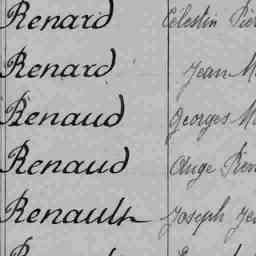 Renard Célestin
Renard Jean
Renaud Georges
Renaud Ange
Renault Joseph